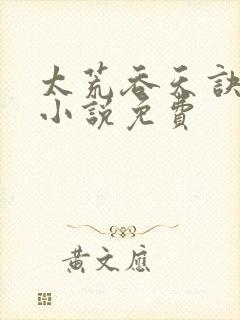 太荒吞天訣
小說免費
黃文應